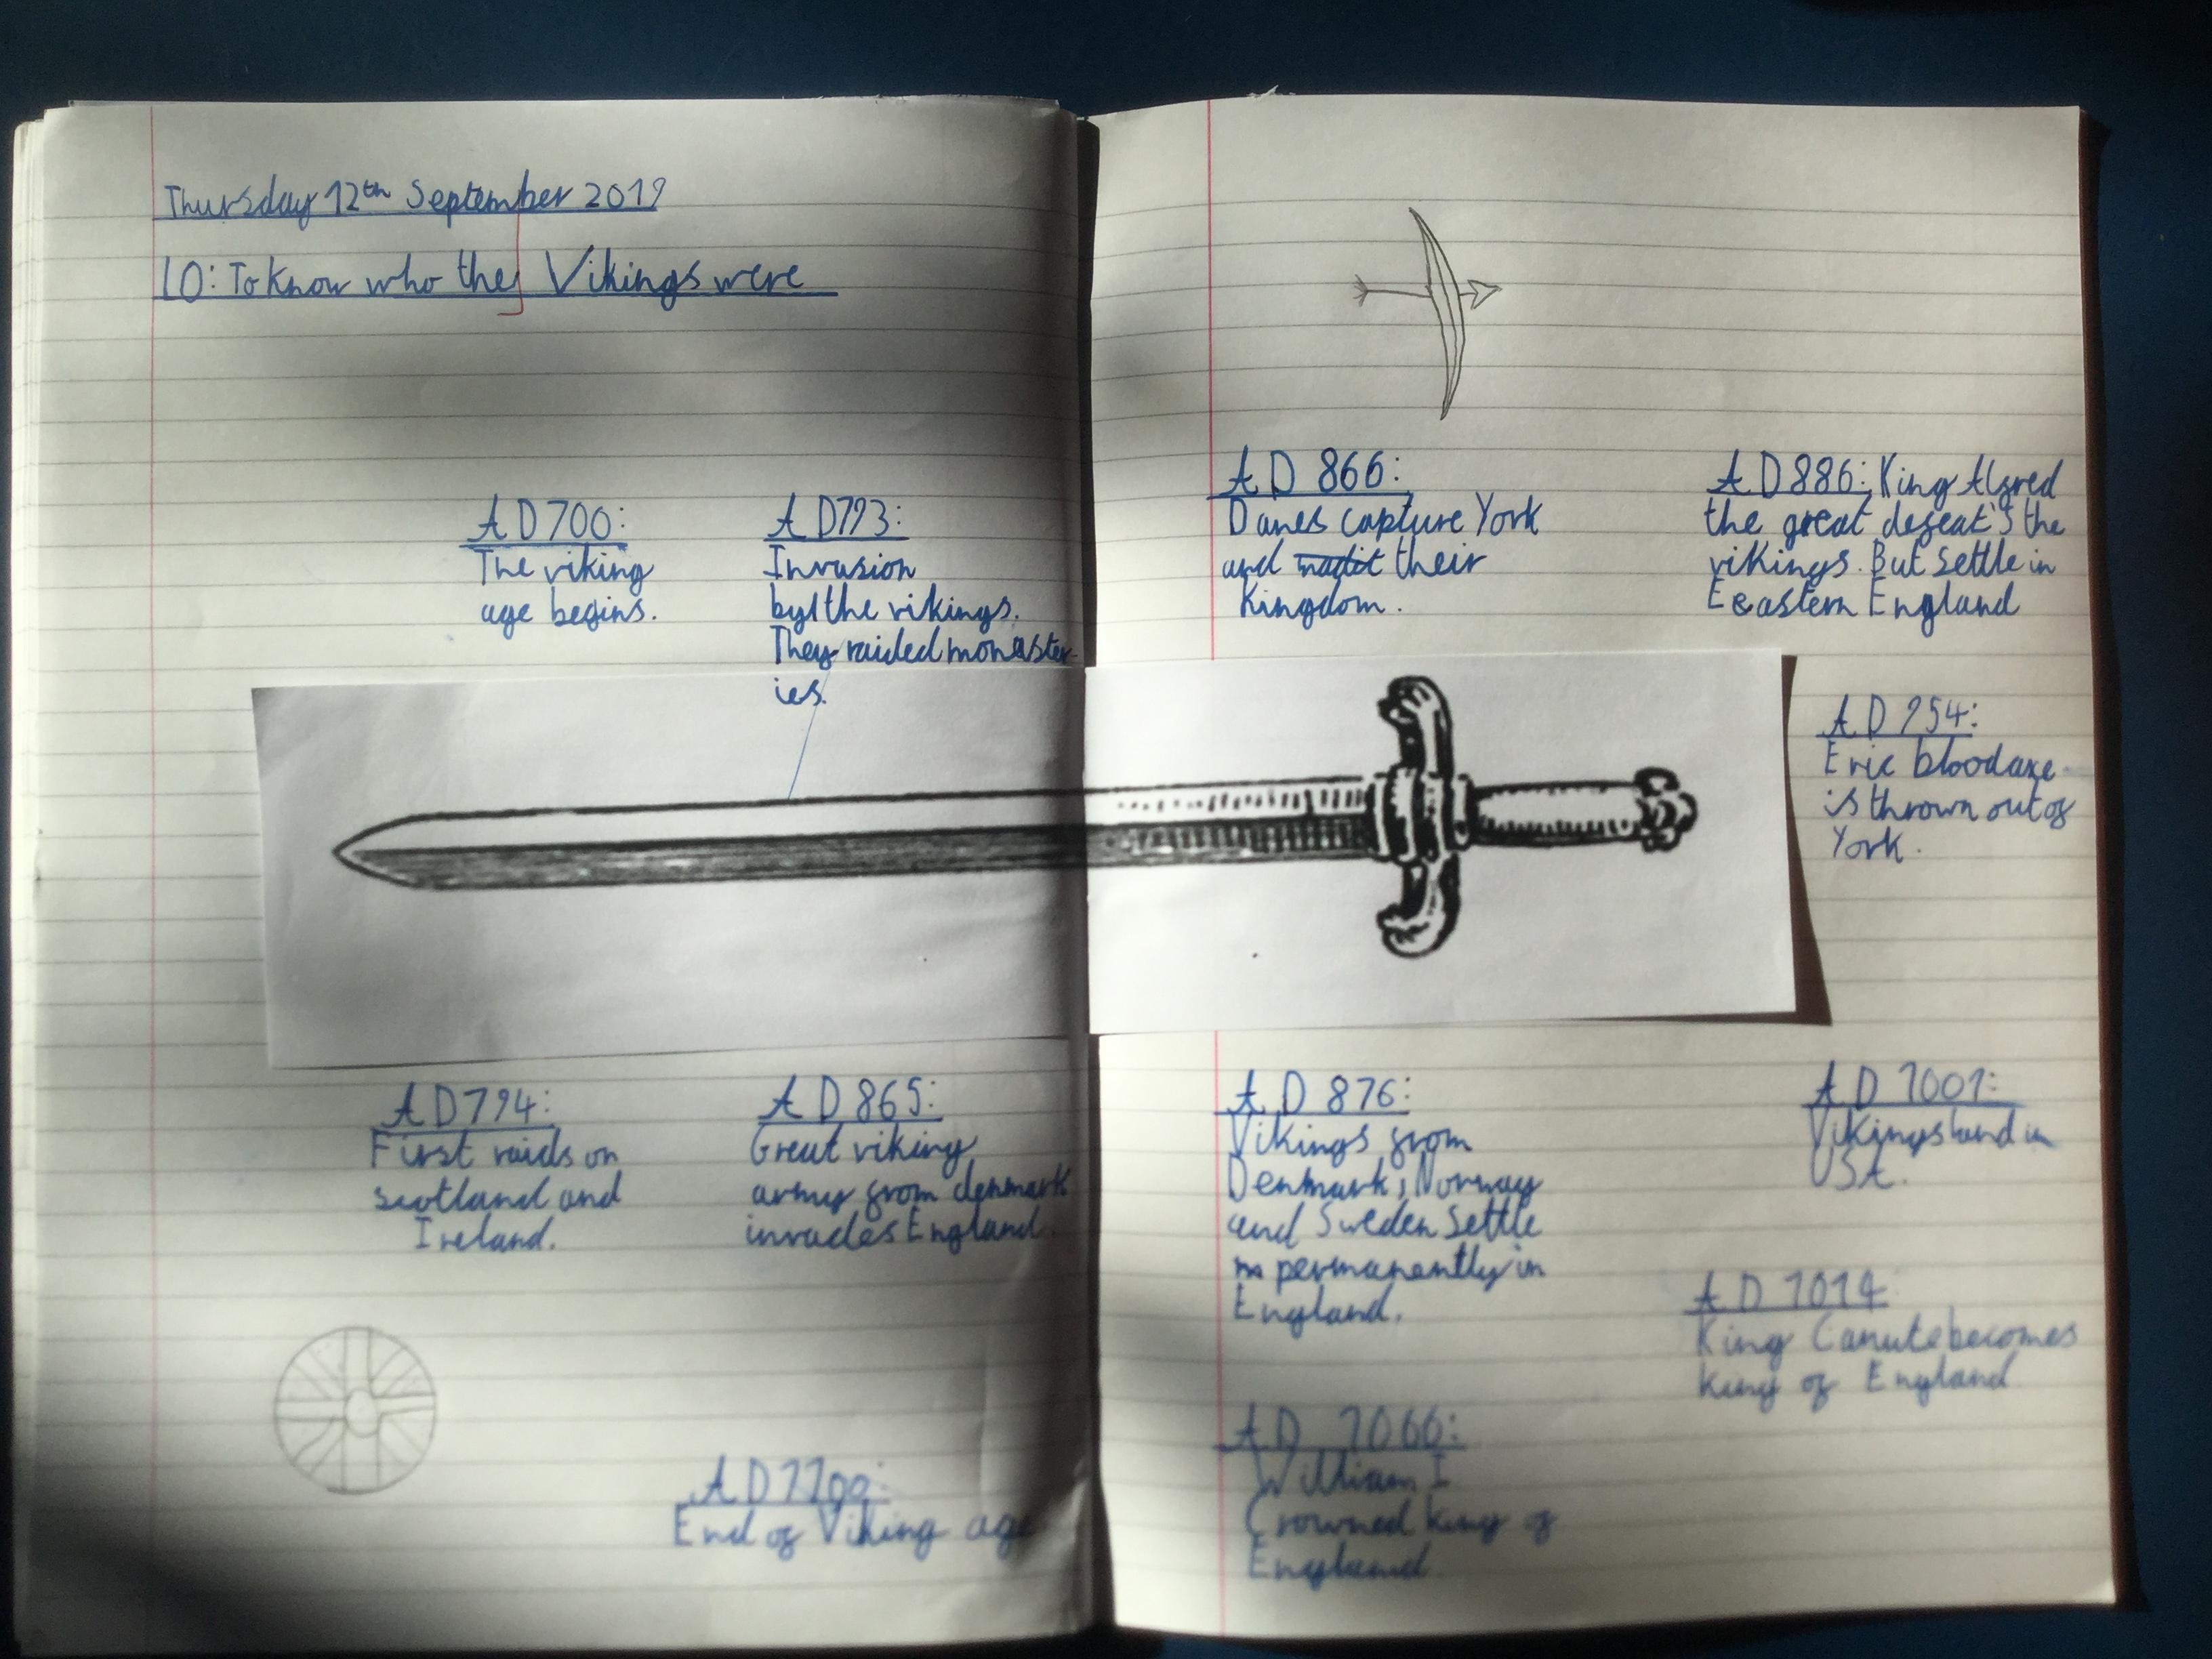 Thursday 12th September 2019
LO: To know who the Vikings were
AD 700:
The viking
age begins.
AD 793:
Invasion
by the vikings.
They raided monaster-
ies.
AD 794:
First raids on
scotland and
Ireland.
AD 865:
Great viking
army from denmark
invades England.
AD 1100:
End of Viking age
AD 866:
Danes capture York
and their
Kingdom.
AD 886: King Alfred
the great defeat's the
vikings. But settle in
Eeastern England
AD 954:
Eric bloodaxe
is thrown out of
York.
AD 876:
Vikings from
Denmark, Norway
and Sweden settle
permanently in
England.
AD 1001:
Vikings land in
USA.
AD 1014
King Canute becomes
king of England
AD 1066:
William I
Crowned king of
England.